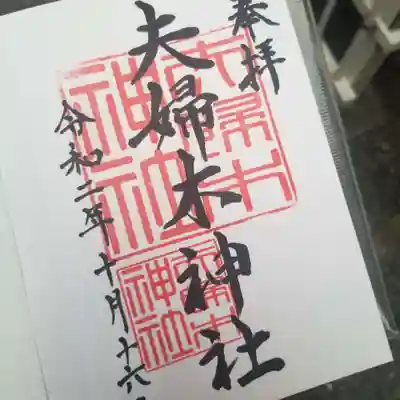 奉拝
夫婦木神社
令和二年十月十六
夫婦木
神社
夫婦木
神社